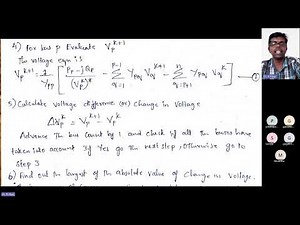 4) For bus p Evaluate V_p^{k+1}
The voltage eqn is
V_p^{k+1} = \frac{1}{Y_{pp}} \left[ \frac{P_p - jQ_p}{(V_p^k)^*} - \sum_{q=1}^{p-1} Y_{pq} V_q^{k+1} - \sum_{q=p+1}^{n} Y_{pq} V_q^k \right]
5) Calculate voltage difference (or) Change in Voltage
ΔV_p^k = V_p^{k+1} - V_p^k
Advance the bus count by 1 and check if all the buses have
taken into account if Yes go the next step, otherwise go to
Step 3
6) Find out the largest of the absolute value of change in Voltage.
P
G
M
S